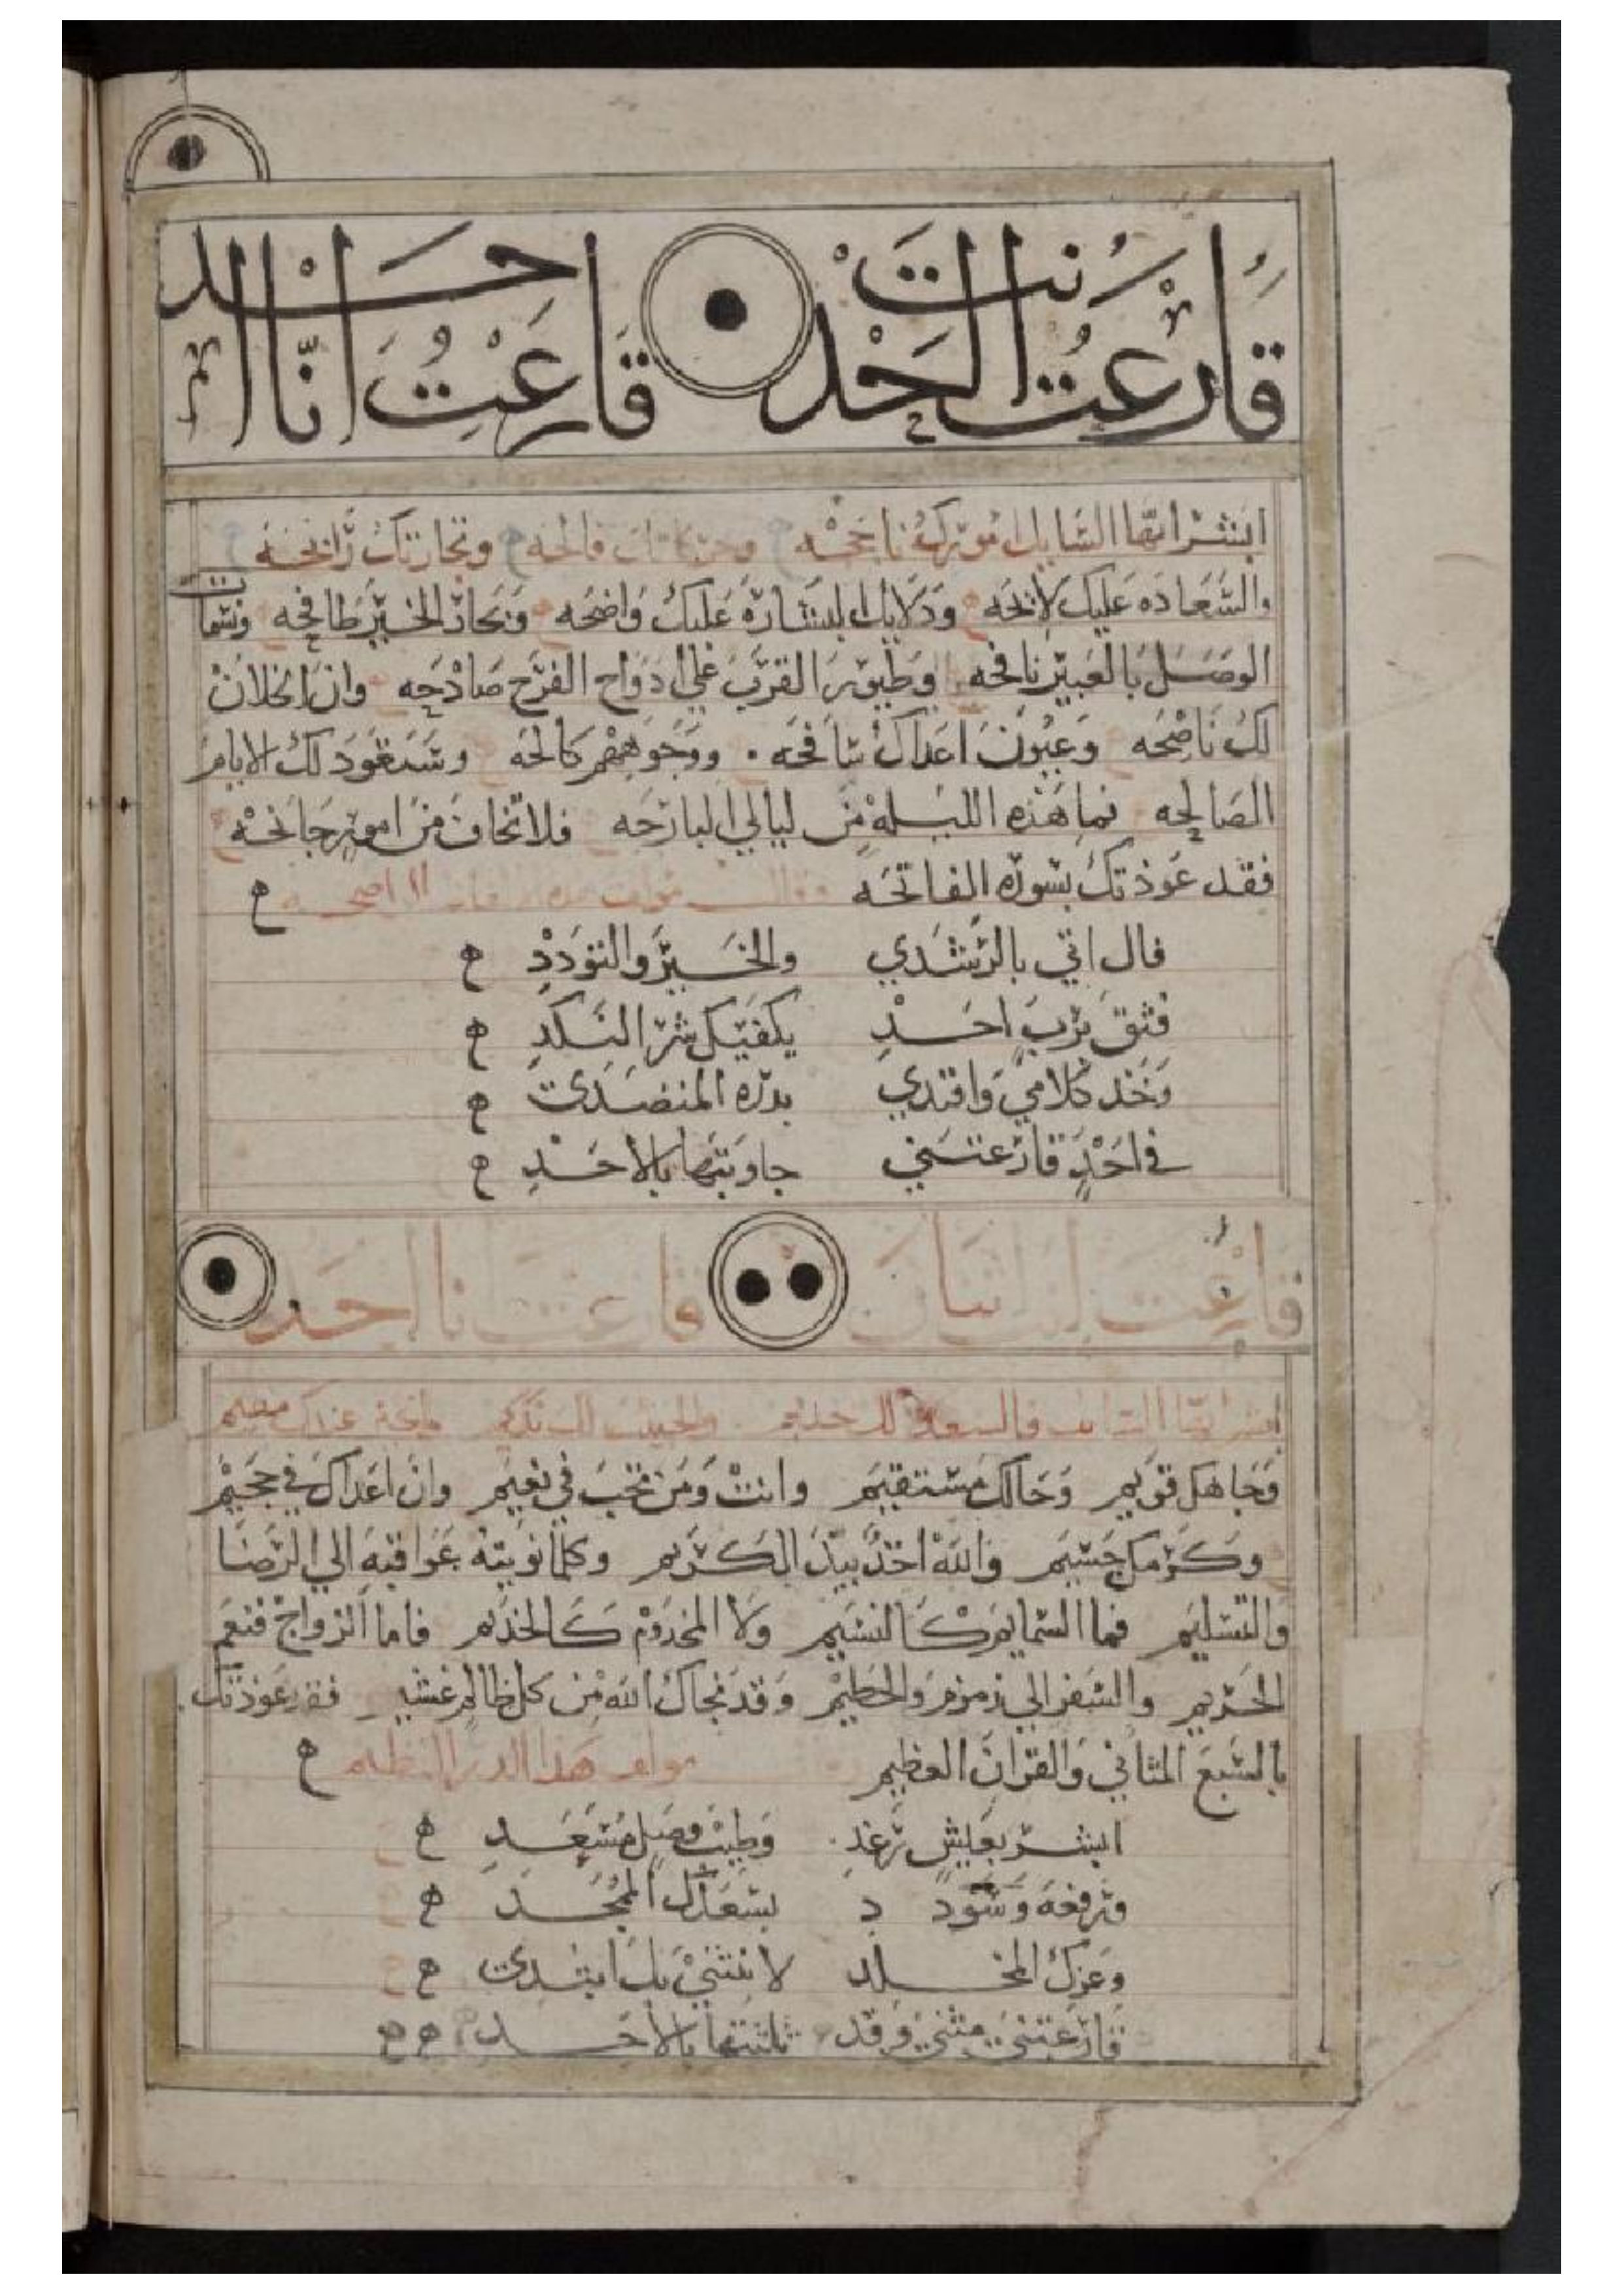 قارعت انت احد
قارعت الحد قارعت انا ال
ابشر ايها السايل امورك ناجحه وحركاتك فالحه وتجارتك رابحه
والسعاده عليك لايحه ودلايل البشاره عليك واضحه وبحار الخير طافحه ونسمات
الوصل بالعبير نافحه وطيور القرب علي ادواح الفرح صادحه وان الخلان
لك ناصحه وعيون اعداك سافحه ووجوههم كالحه وستعود لك الايام
الصالحه فما هذه الليله من ليالي البارحه فلا تخاف من امور جانحه
فقد عوذتك بسوره الفاتحه
فال اتي بالرشدي والخير والتودد
فثق برب احد يكفيك شر النكد
وخذ كلامي واقتدي بدره المنضدي
في احد قارعتني جاوبتها بالاحد
قارعت انت قارعت انا احد
ابشر ايها السايل
وجاهك قويم وحالك مستقيم وانت ومن تحب في نعيم وان اعداك في جحيم
وكرمك جسيم والله اخذ بيد الكريم وكلما نويته عواقبه الي الرضا
والتسليم فما السمايم كالنسيم ولا المخدوم كالخديم فاما الزواج فنعم
الحريم والسفر الي زمزم والحطيم وقد نجاك الله من كل ظالم غشيم فقد عوذتك
بالسبع المثاني والقران العظيم مولف هذا الدر النظيم
ابشر بعيش رغد وطيب وصل مسعد
ورفعه وسودد بسعدك المجدد
وعزك المخلد لا تنثني بل ابتدي
قارعتني مثني وقد ثلثتها بالاحد